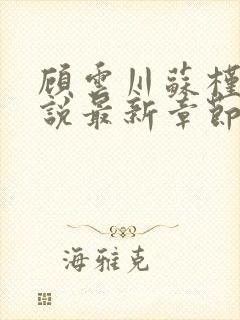 顾云川蘇槿
說最新章節
海雅克